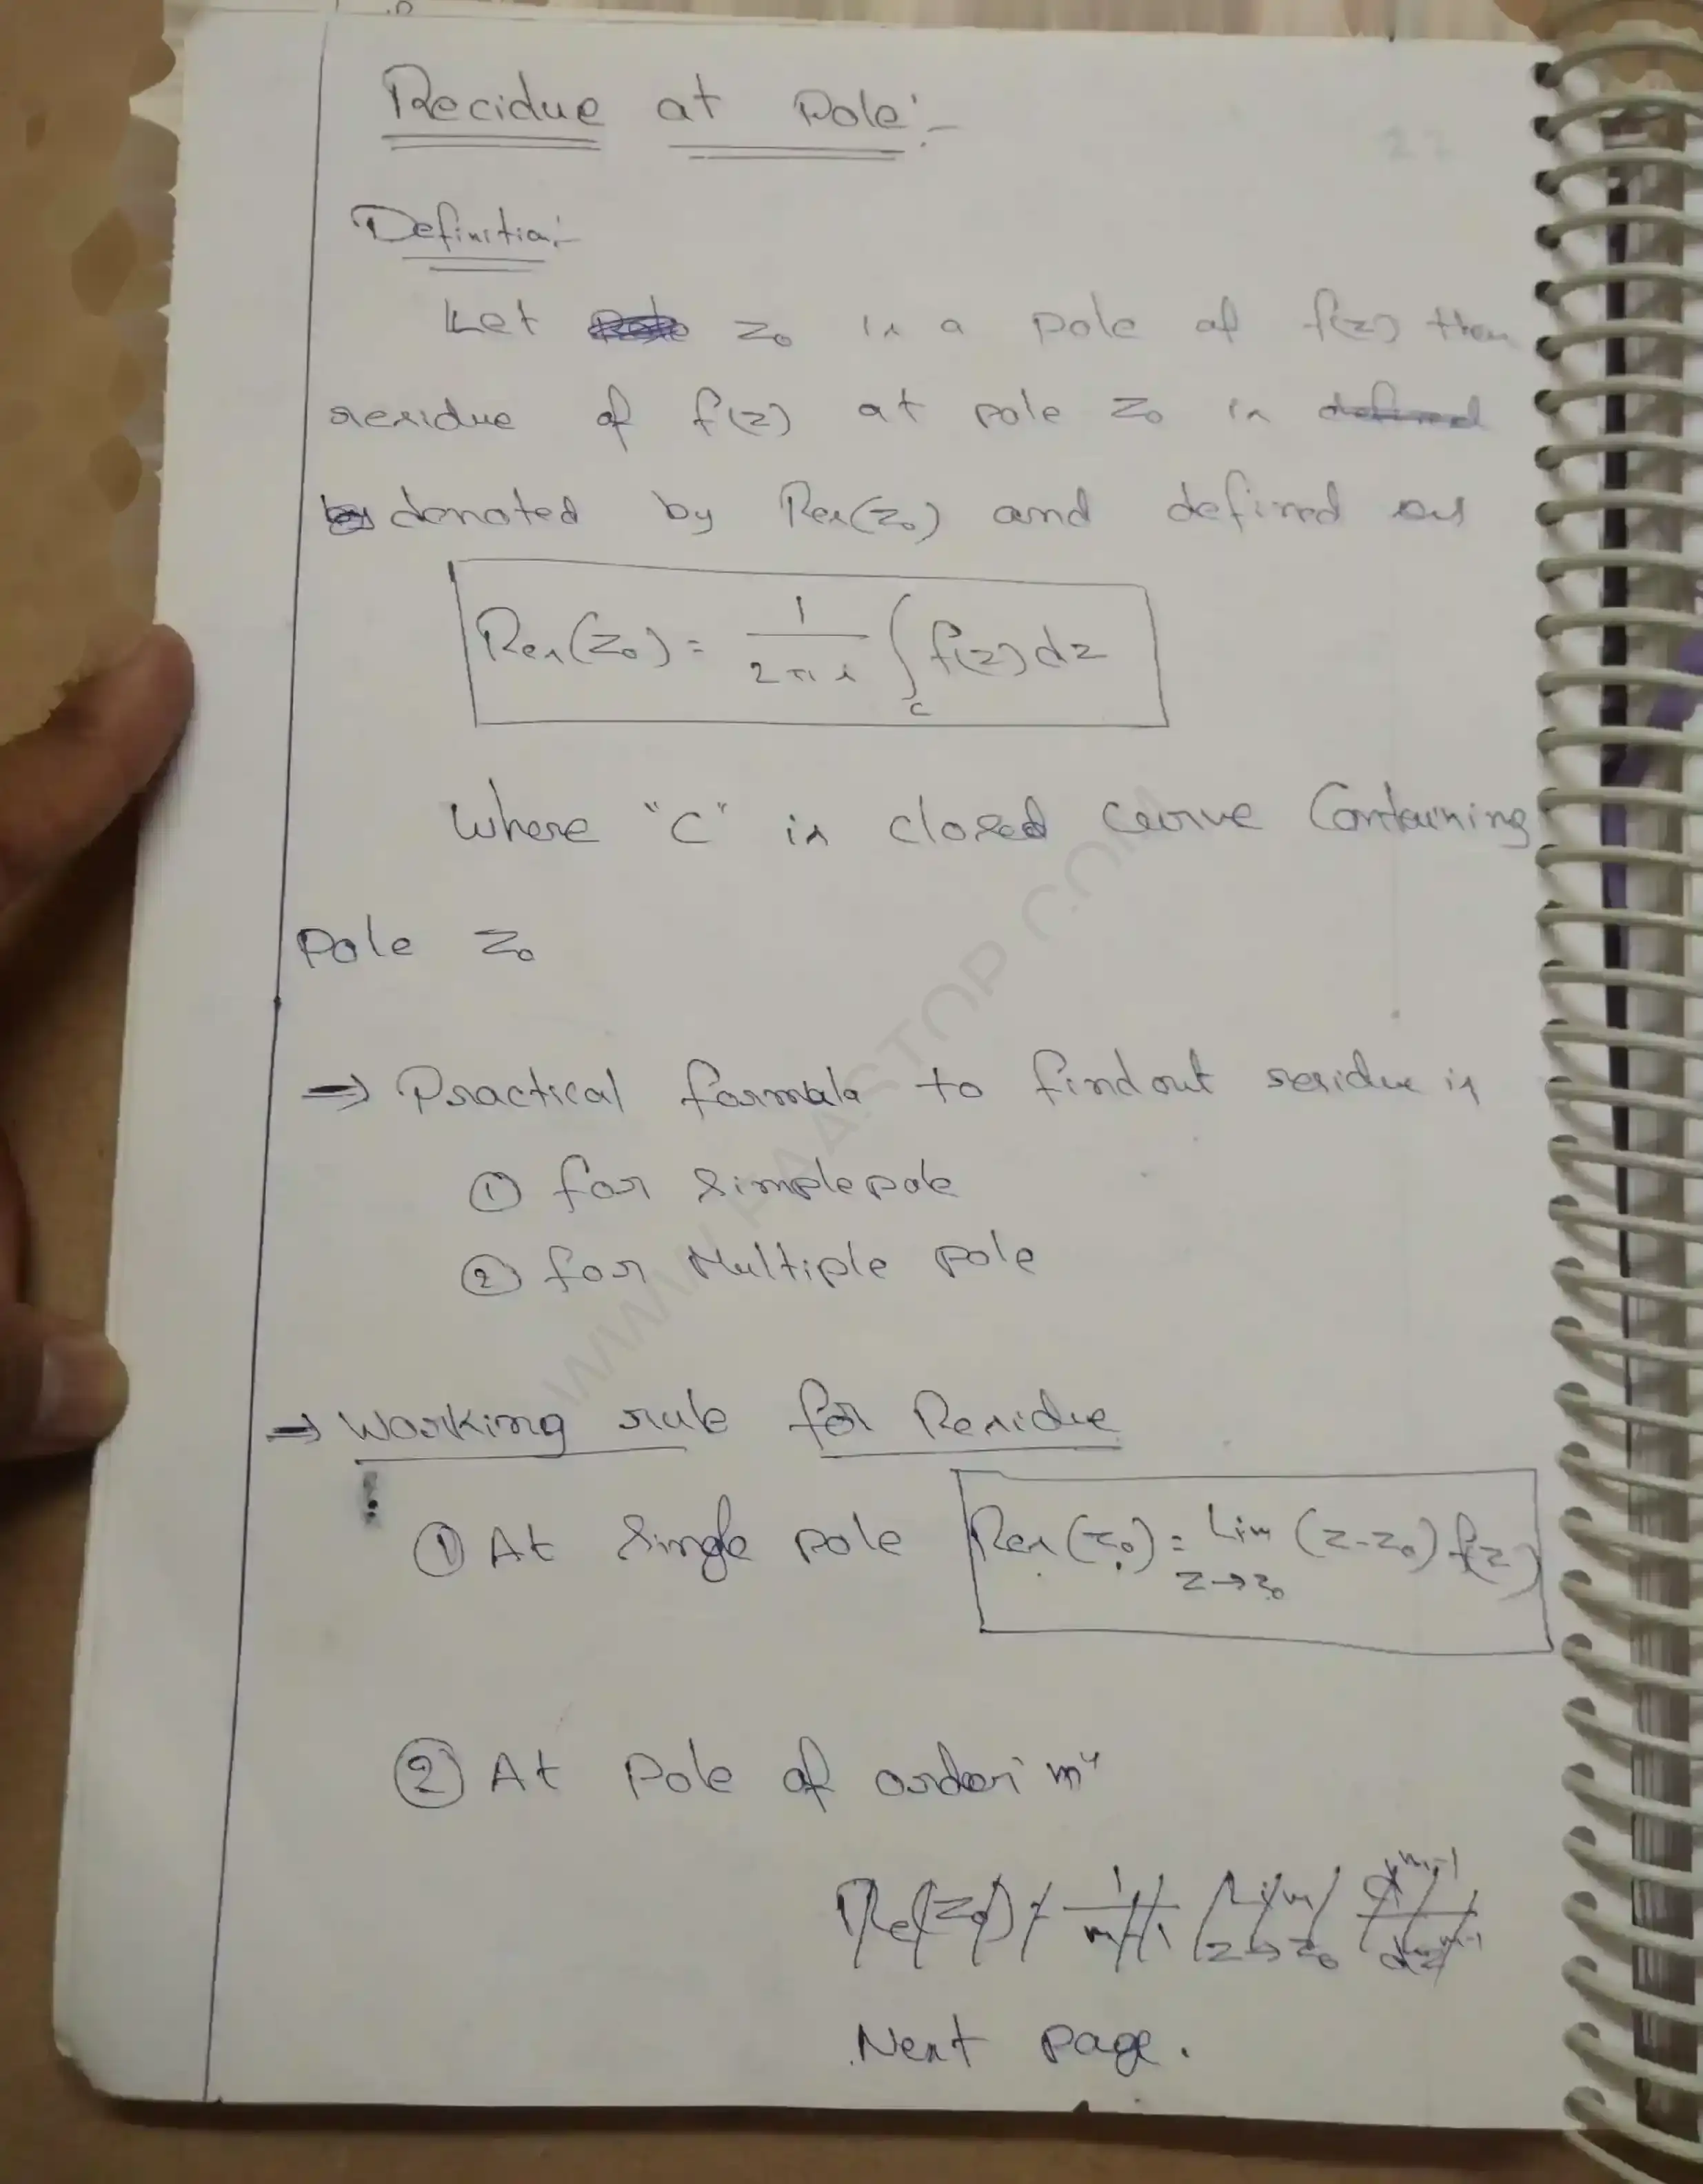 Recidue at Pole:-
Definition:-
Let z₀ is a pole of f(z) then
residue of f(z) at pole z₀ is defined
by denoted by Res(z₀) and defined as
Res(z₀) = 1/2πi ∫_c f(z) dz
Where "C" is closed curve Containing
Pole z₀
→ Practical formula to find out residue is
① for simple pole
② for Multiple pole
→ Working rule for Residue
① At Single pole Res(z₀) = Lim z→z₀ (z-z₀) f(z)
② At Pole of order "m"
Re(z₀) = 1/m-1 Lim z→z₀ d^m-1/dz^m-1
Next page.
WWW.FAASTOP.COM